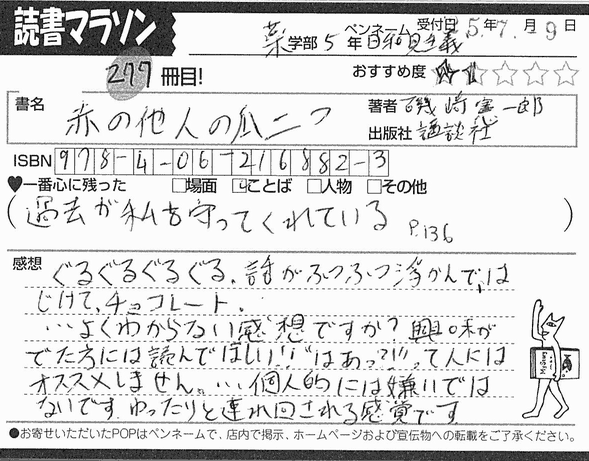 読書マラソン
薬学部 5年 ペンネーム 日和見主義 受付日 5年7月-9日
277冊目!
おすすめ度 ★★☆☆☆
書名 赤の他人の瓜二つ
著者 磯﨑憲一郎
出版社 講談社
ISBN 978-4-06-216882-3
♥一番心に残った □場面 ☑ことば □人物 □その他
(過去が私を守ってくれている P.136)
感想 ぐるぐるぐるぐる、話がふつふつ浮かんでは
じけて、チョコレート。
…よくわからない感想ですか?興味が
でた方には読んでほしい!!"はあっ?!!"って人には
オススメしません。…個人的には嫌いでは
ないです。ゆったりと連れ回される感覚です
●お寄せいただいたPOPはペンネームで、店内で掲示、ホームページおよび宣伝物への転載をご了承ください。